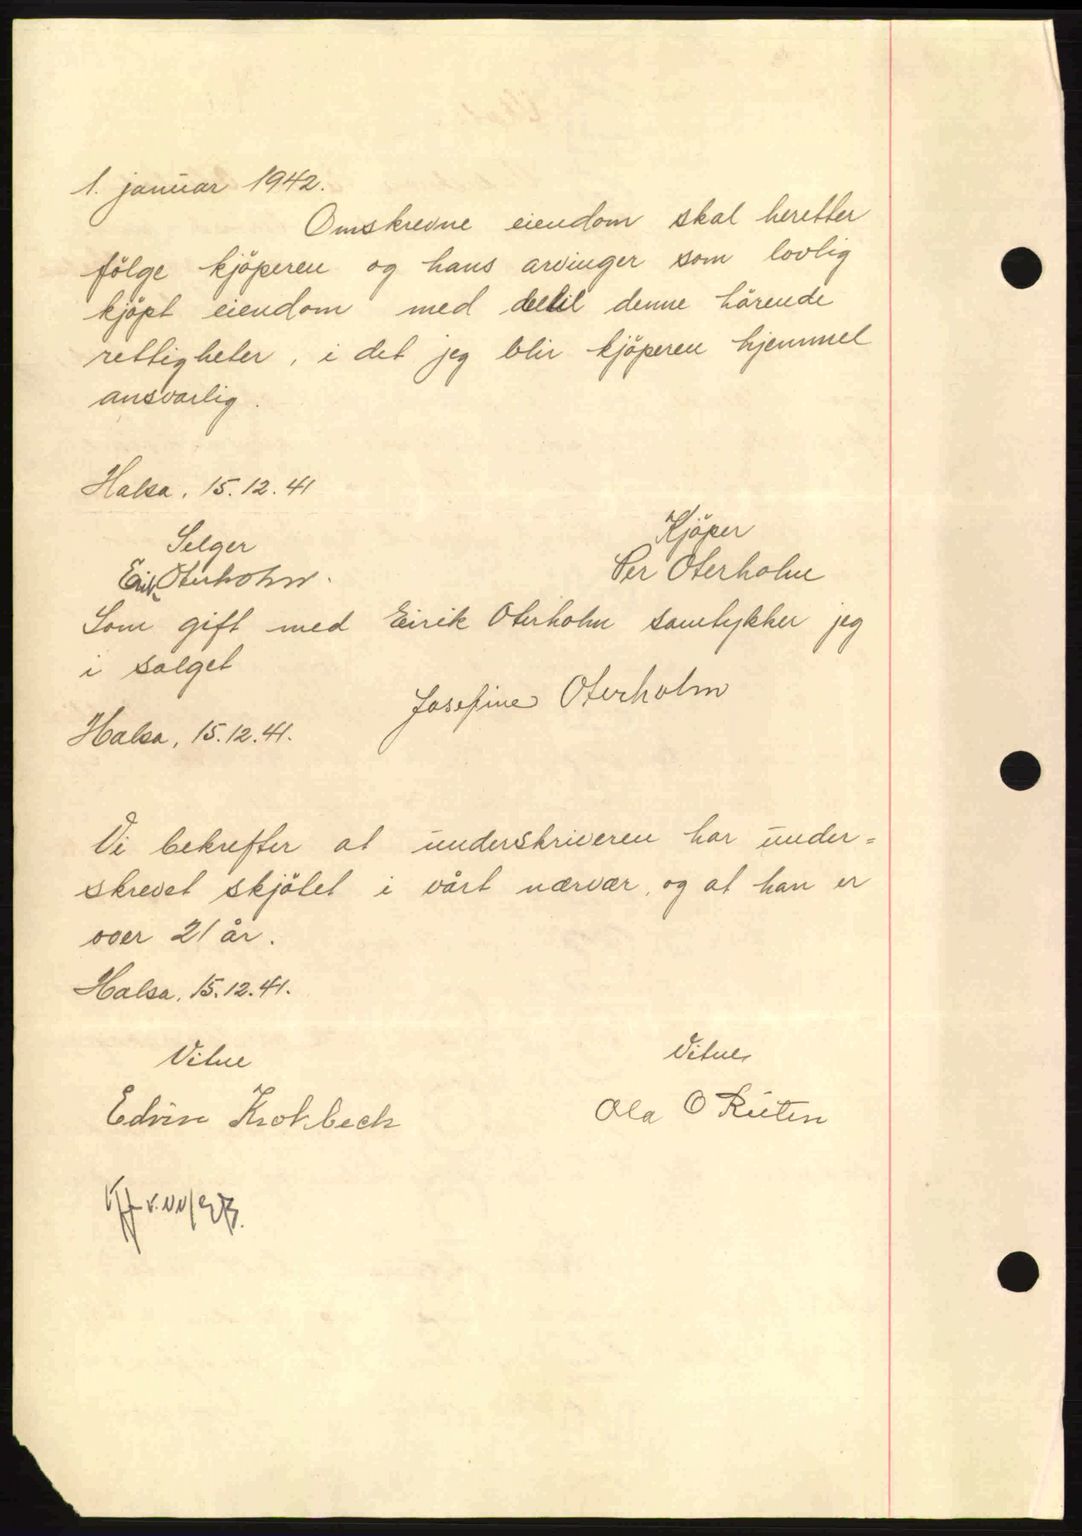 1. januar 1942.
Omskrevne eiendom skal heretter
fölge kjöperen og hans arvinger som lovlig
kjöpt eiendom med deltil denne hörende
rettigheter, i det jeg blir kjöperen hjemmel
ansvarlig.
Halsa, 15.12.41
Selger Kjöper
Eirik Oterholm. Per Oterholm
Som gift med Eirik Oterholm samtykker jeg
i salget
Josefine Oterholm
Halsa, 15.12.41.
Vi bekrefter at underskriveren har under=
skrevet skjötet i vårt nærvær, og at han er
over 21 år.
Halsa, 15.12.41.
Vitne Vitne
Edvin Krokbeck Ola O